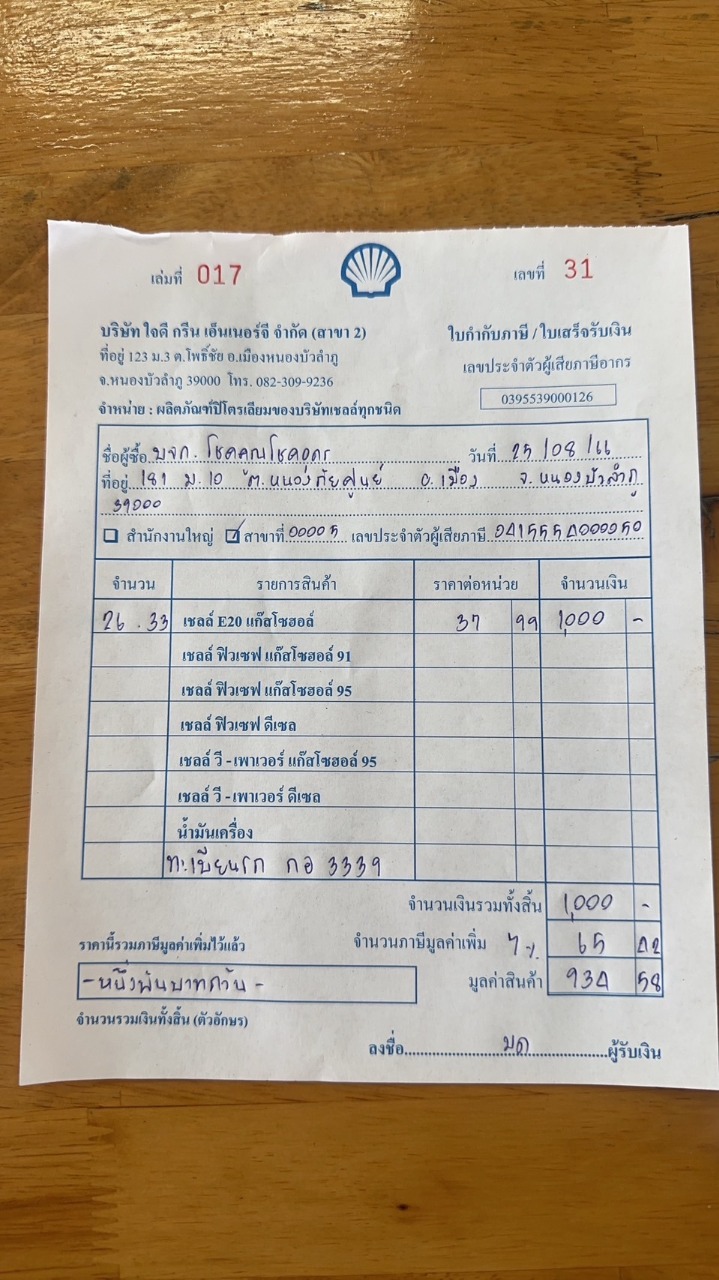 เล่มที่ 017 เลขที่ 31
บริษัท ใจดี กรีน เอ็นเนอร์จี จำกัด (สาขา 2) ใบกำกับภาษี / ใบเสร็จรับเงิน
ที่อยู่ 123 ม.3 ต.โพธิ์ชัย อ.เมืองหนองบัวลำภู เลขประจำตัวผู้เสียภาษีอากร
จ.หนองบัวลำภู 39000 โทร. 082-309-9236 0395539000126
จำหน่าย : ผลิตภัณฑ์ปิโตรเลียมของบริษัทเชลล์ทุกชนิด
ชื่อผู้ซื้อ บจก. โชคคูณโชคอดร วันที่ 25/08/66
ที่อยู่ 181 ม.10 ต.หนองภัยศูนย์ อ.เมือง จ.หนองบัวลำภู
39000
สำนักงานใหญ่ สาขาที่ 00005 เลขประจำตัวผู้เสียภาษี 0415554000050
จำนวน รายการสินค้า ราคาต่อหน่วย จำนวนเงิน
26.33 เชลล์ E20 แก๊สโซฮอล์ 37 99 1,000 -
เชลล์ ฟิวเซฟ แก๊สโซฮอล์ 91
เชลล์ ฟิวเซฟ แก๊สโซฮอล์ 95
เชลล์ ฟิวเซฟ ดีเซล
เชลล์ วี - เพาเวอร์ แก๊สโซฮอล์ 95
เชลล์ วี - เพาเวอร์ ดีเซล
น้ำมันเครื่อง
ทะเบียนรถ กอ 3339
จำนวนเงินรวมทั้งสิ้น 1,000 -
ราคานี้รวมภาษีมูลค่าเพิ่มไว้แล้ว จำนวนภาษีมูลค่าเพิ่ม 7%. 65 42
-หนึ่งพันบาทถ้วน- มูลค่าสินค้า 934 58
จำนวนรวมเงินทั้งสิ้น (ตัวอักษร)
ลงชื่อ มด ผู้รับเงิน